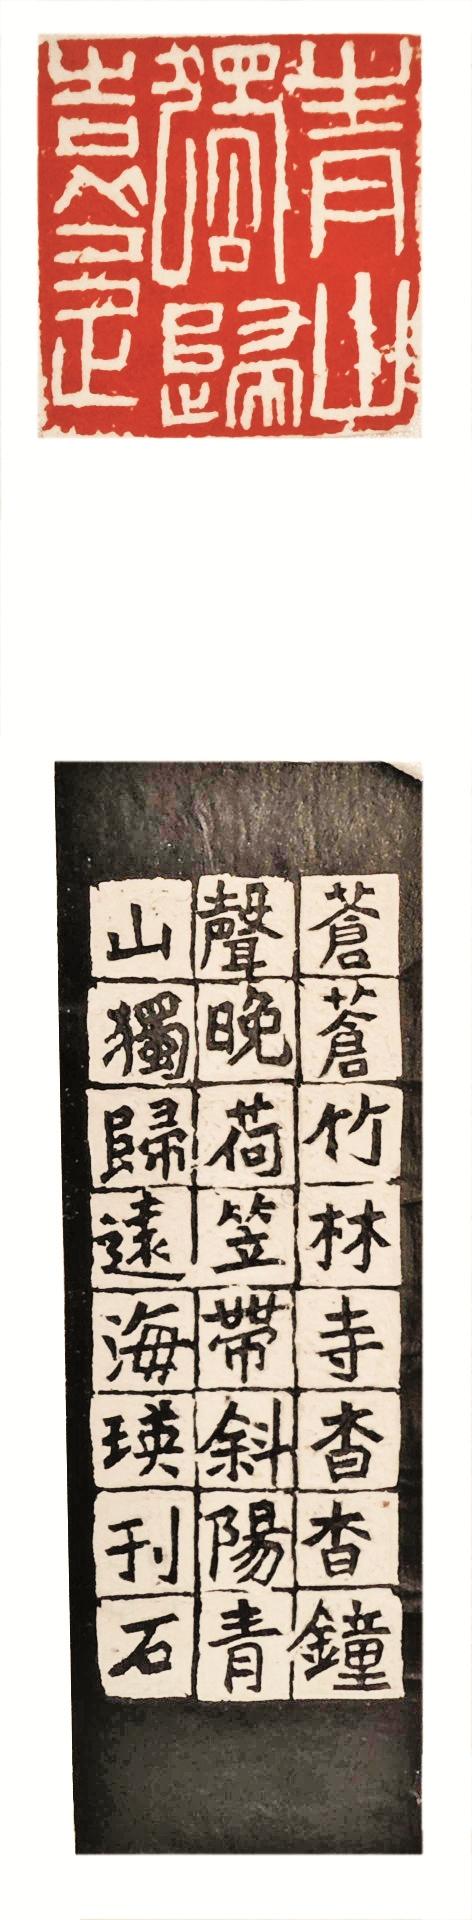 青山
獨歸
遠
蒼蒼竹林寺杳杳鐘
聲晚荷笠帶斜陽青
山獨歸遠海瑛刊石